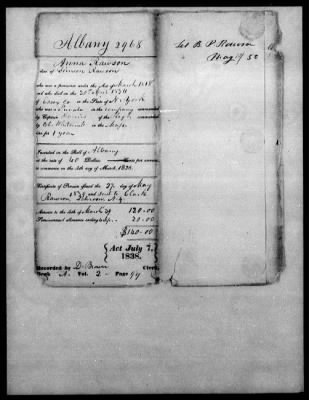 Albany 2968
Anna Rawson
widow of Simeon Rawson
who was a pensioner under the Act of March 1818
and who died on the
of Essex Co in the State of N. York
was a Private in the company commanded
by Captain of the regt commanded
by Col. in the Mass
for 1 year
Inscribed on the Roll of Albany
at the rate of 40 Dollars Cents per annum,
to commence on the 4th day of March, 1838.
Certificate of Pension issued the 27 day of May
1839 and sent to Clark
Rawson, Schroon N.Y
Arrears to the 4th of March 39 120.00
Semi-annual allowance ending Sep. 20.00
$140.00
Act July 7,
1838.
Recorded by D. Brown Clerk,
Book A Vol. 2 Page 99
Let B. P. Rawson
May 9/50